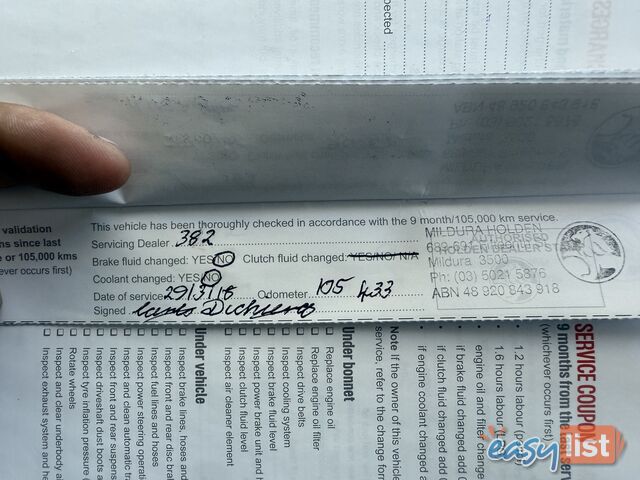 pected
validation
ms since last
e or 105,000 km
ever occurs first)
This vehicle has been thoroughly checked in accordance with the 9 month/105,000 km service.
Servicing Dealer 382
Brake fluid changed: YES/NO Clutch fluid changed: YES/NO/N/A
Coolant changed: YES/NO
Date of service 29/3/18 Odometer 105 433
Signed
MILDURA HOLDEN
HOLDEN DEALER
Mildura 3500
Ph: (03) 5021 5376
ABN 48 920 843 918
SERVICE COUPO
9 months from the
(whichever occurs first)
1.2 hours labour
1.6 hours labour
engine oil and filter change
if brake fluid changed add
if clutch fluid changed add
if engine coolant changed
Note If the owner of this vehicle
service, refer to the change form
Under bonnet
Replace engine oil
Replace engine oil filter
Inspect drive belts
Inspect cooling system
Inspect brake fluid level
Inspect power brake unit and h
Inspect clutch fluid level
Inspect air cleaner element
Under vehicle
Inspect brake lines, hoses and
Inspect front and rear disc brak
Inspect fuel lines and hoses
Inspect power steering operati
Inspect and clean automatic tra
Inspect front and rear suspens
Inspect driveshaft dust boots a
Inspect tyre inflation pressure (
Rotate wheels
Inspect and clear underbody a
Inspect exhaust system and he
easylist